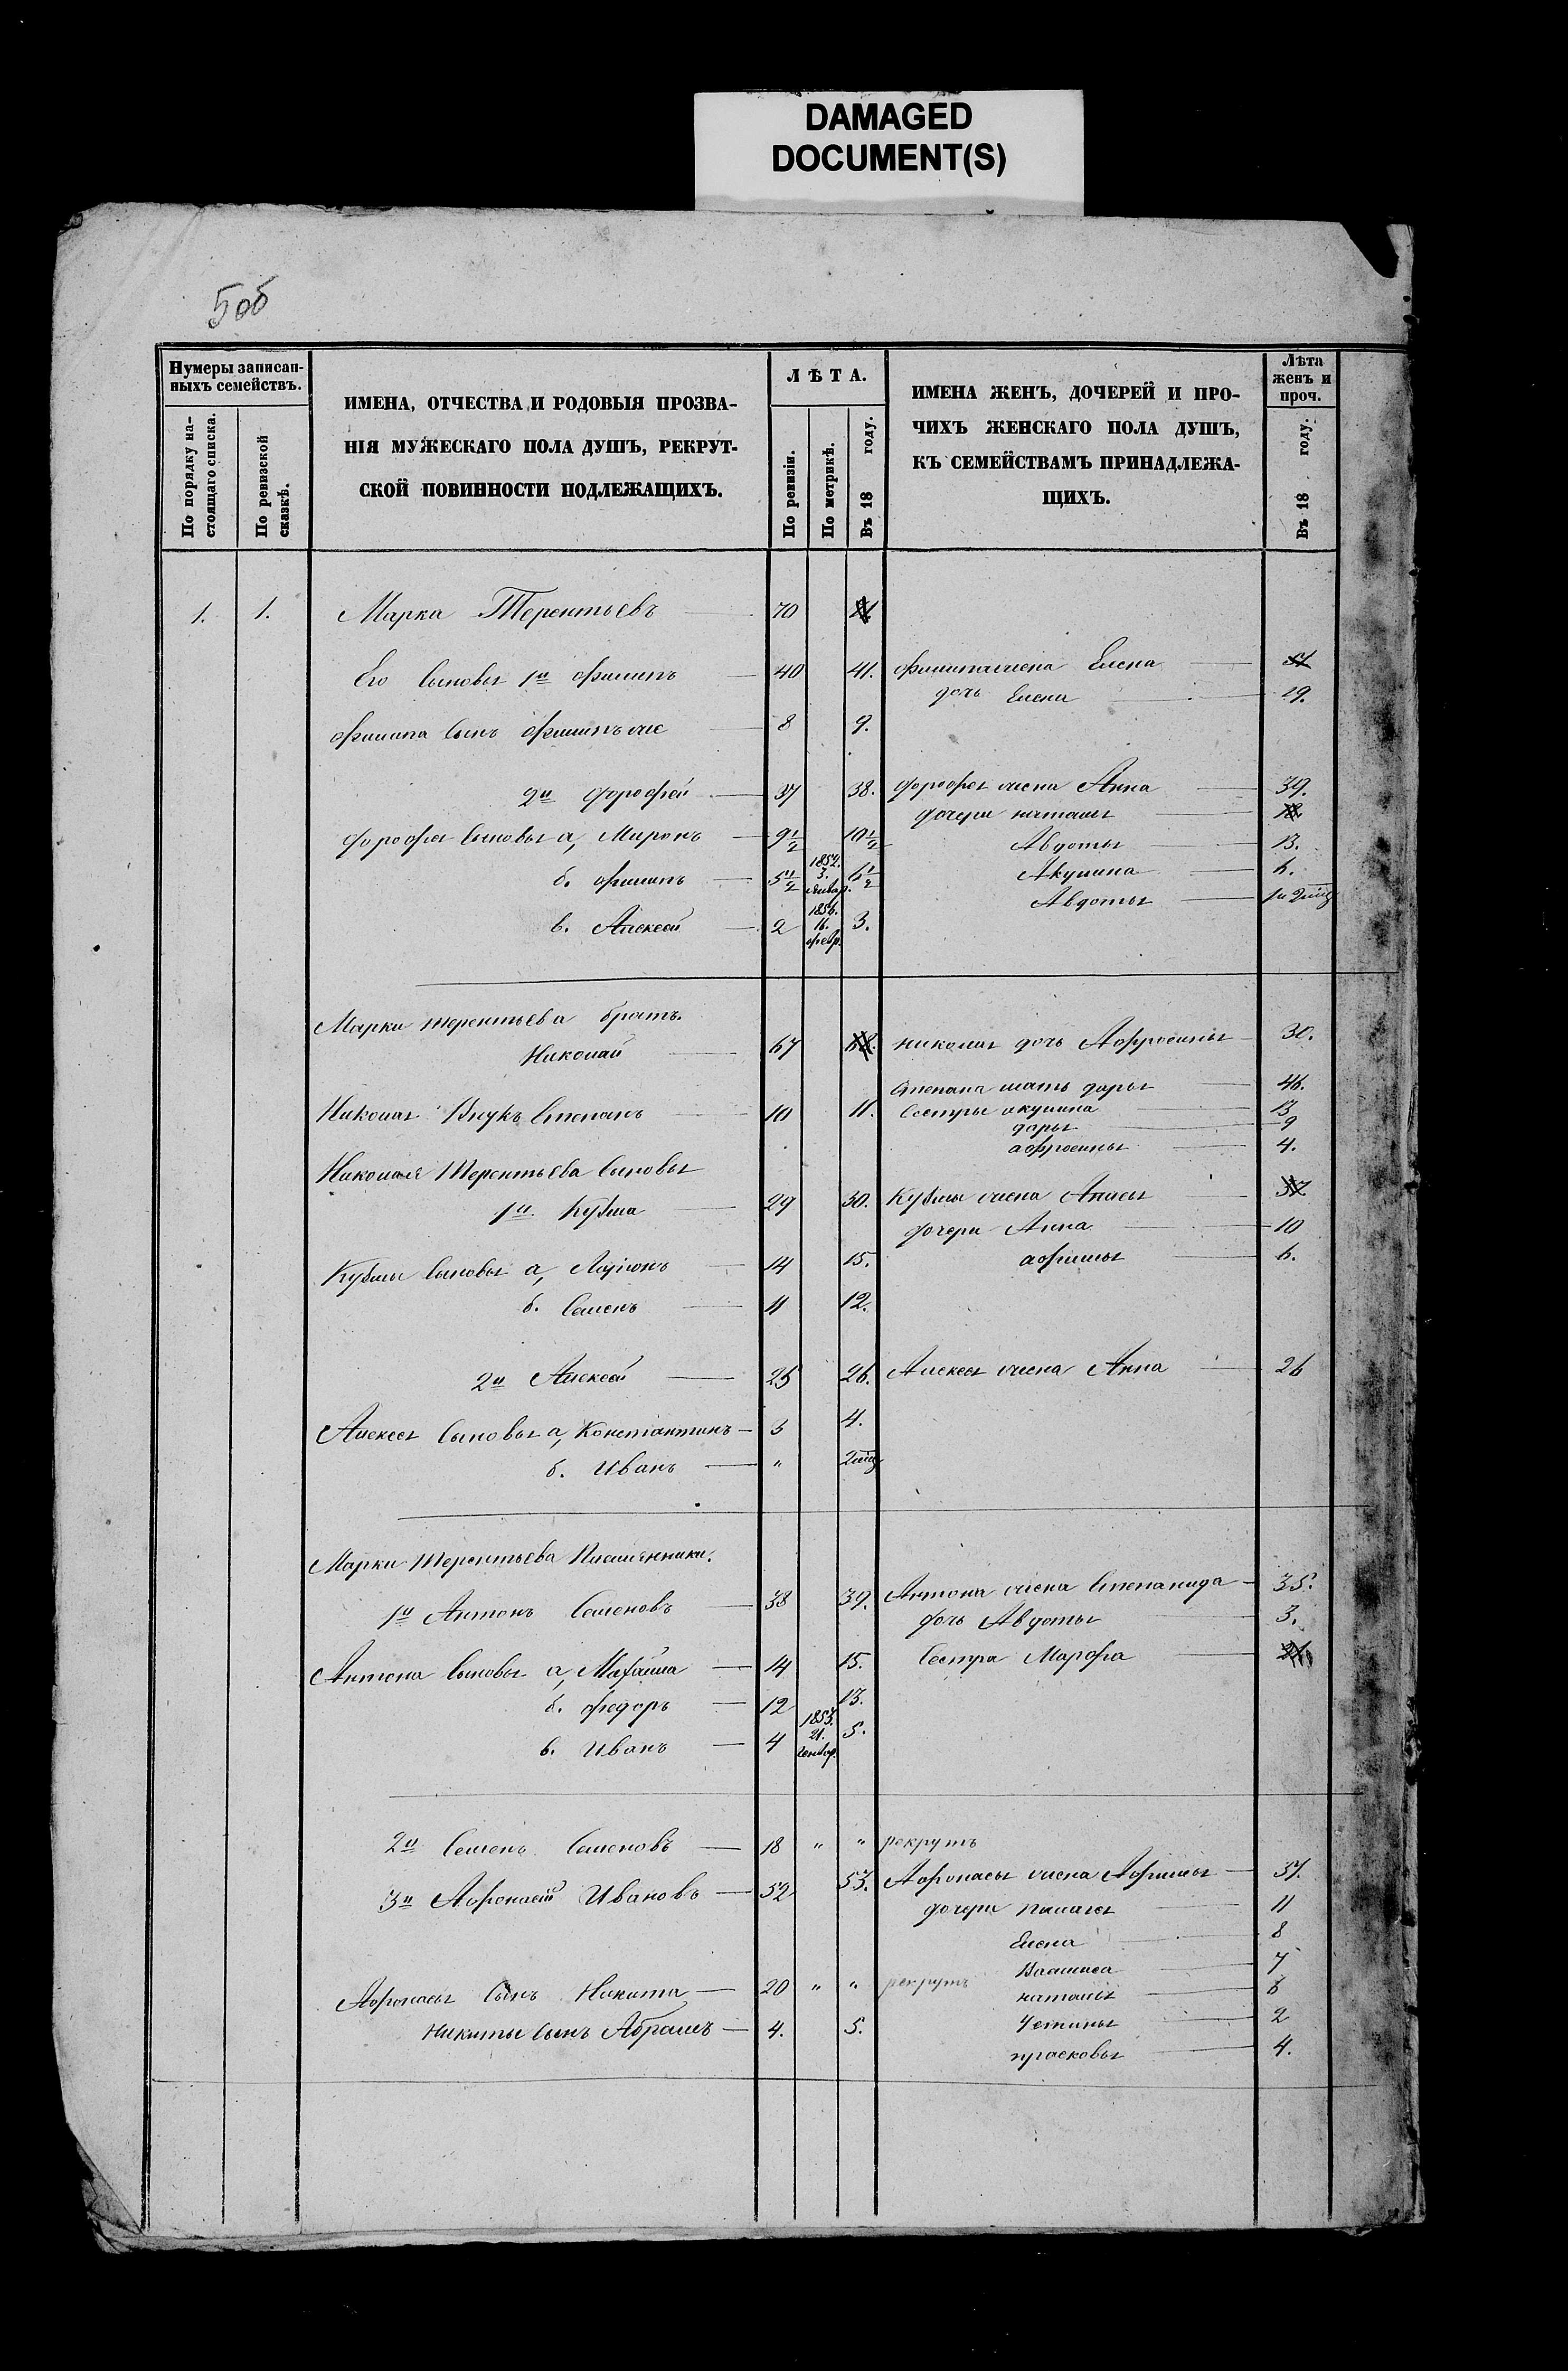 DAMAGED
DOCUMENT(S)
5об
Нумеры записан-
ныхъ семействъ.
По порядку на-
стоящаго списка.
По ревизской
сказкѣ.
ИМЕНА, ОТЧЕСТВА И РОДОВЫЯ ПРОЗВА-
НІЯ МУЖЕСКАГО ПОЛА ДУШЪ, РЕКРУТ-
СКОЙ ПОВИННОСТИ ПОДЛЕЖАЩИХЪ.
ЛѢТА.
По ревизіи.
По метрикѣ.
Въ 18 году.
ИМЕНА ЖЕНЪ, ДОЧЕРЕЙ И ПРО-
ЧИХЪ ЖЕНСКАГО ПОЛА ДУШЪ,
КЪ СЕМЕЙСТВАМЪ ПРИНАДЛЕЖА-
ЩИХЪ.
Лѣта
женъ и
проч.
Въ 18 году.
1. 1. Марка Терентьевъ 70
Его сыновья 1й филипъ 40 41. филипа жена Елена
дочь Елена 19.
филипа сынъ филипъ же 8 9.
2й дорофей 37 38. дорофея жена Анна 39.
дочери наталья
дорофея сыновья а, Миронъ 9 1/2 10 1/2 Авдотья 13.
б. филипъ 5 1/2 1852. 3. Январ. 6 1/2 Акулина 6.
Авдотья 1 и 2 мцъ
в. Алексей 2 1856. 16. февр. 3.
Марки терентьева братъ.
Николай 67 николая дочь Афросинья 30.
Степана мать дарья 46.
Николая Внукъ Степанъ 10 11. Сестры акулина 13
дарья 9
афросинья 4.
Николая Терентьева сыновья
1й Кузма 29 30. Кузмы жена Анисья
дочери Анна 10
Кузмы сыновья а, Ларіонъ 14 15. афимья 6.
б. Семенъ 11 12.
2й Алексей 25 26. Алексея жена Анна 26
Алексея сыновья а, Константинъ 3 4.
б. Иванъ " 2 мцъ
Марки Терентьева Племянники.
1й Антонъ Семеновъ 38 39. Антона жена Степанида 35.
дочь Авдотья 3.
Антона сыновья а, 14 15. Сестра Марфа
б. федоръ 12 13.
в. Иванъ 4 1853. 21. Сентяр. 5.
2й Семенъ Семеновъ 18 " " рекрутъ
3й Афонасій Ивановъ 52 53. Афонасья жена Афимья 57.
дочери Палагея 11
Елена 8
Василиса 7
Афонасья сынъ Никита 20 " " рекрутъ наталья 6
Никиты сынъ Абрамъ 4. 5. Устинья 2
прасковья 4.